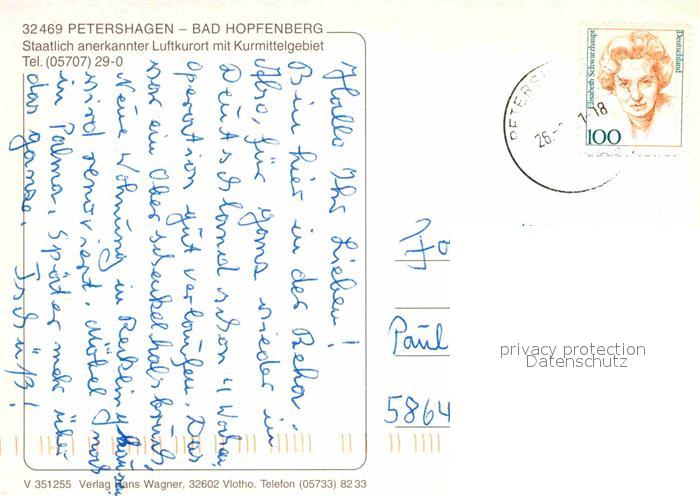 32469 PETERSHAGEN – BAD HOPFENBERG
Staatlich anerkannter Luftkurort mit Kurmittelgebiet
Tel. (05707) 29-0
Hallo Ihr Lieben!
Bin hier in der Reha.
Also, für ganz wieder in
Deutschland schon 4 Wochen
Operation gut verlaufen. Das
war ein Oberschenkelhalsbruch,
Neue Wohnung in
wird renoviert. Möbel noch
in Palma. Später mehr über
das ganze. Tschüß!
Elisabeth Schwarzhaupt
Deutschland
100
PETERS
26.
-18
Paul
5864
privacy protection
Datenschutz
V 351255 Verlag Hans Wagner, 32602 Vlotho. Telefon (05733) 82 33